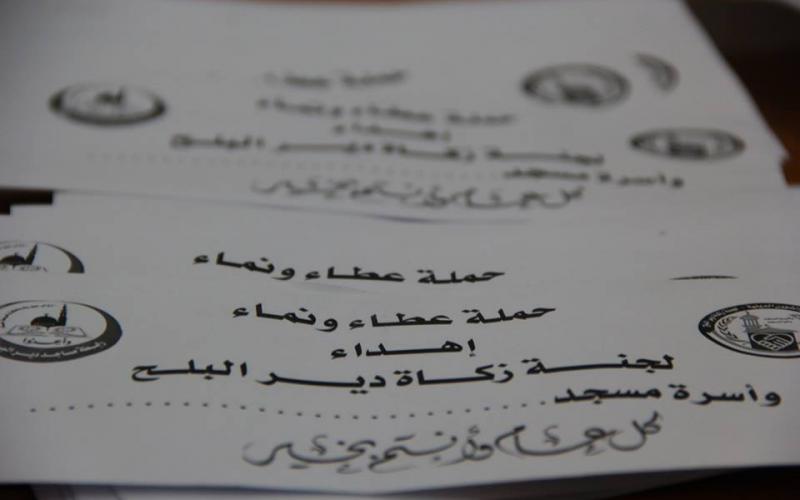 حملة عطاء ونماء
إهداء
لجنة زكاة دير البلح
وأسرة مسجد
كل عام وأنتم بخير
حملة عطاء ونماء
حملة عطاء ونماء
إهداء
لجنـــة زكـــاة ديـــر البلـــح
وأسرة مسجد..............................
كل عام وأنتم بخير